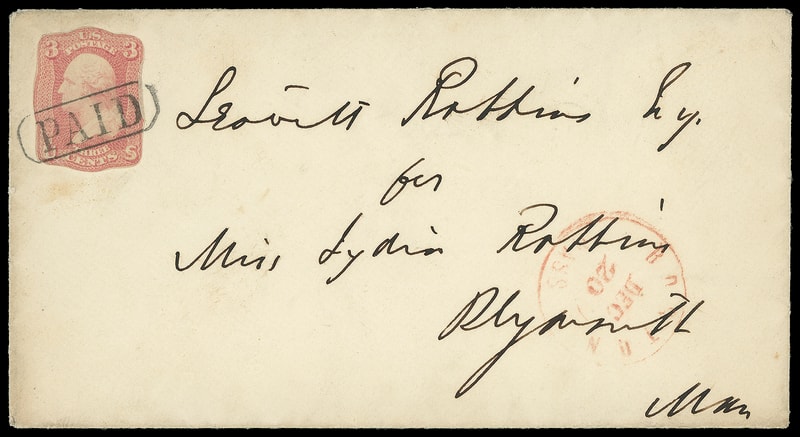 U.S.
POSTAGE
3 3
PAID
THREE
CENTS
Leavitt Robbins Esq.
for
Miss Lydia Robbins
Plymouth
Mass
BOSTON MASS
DEC
20